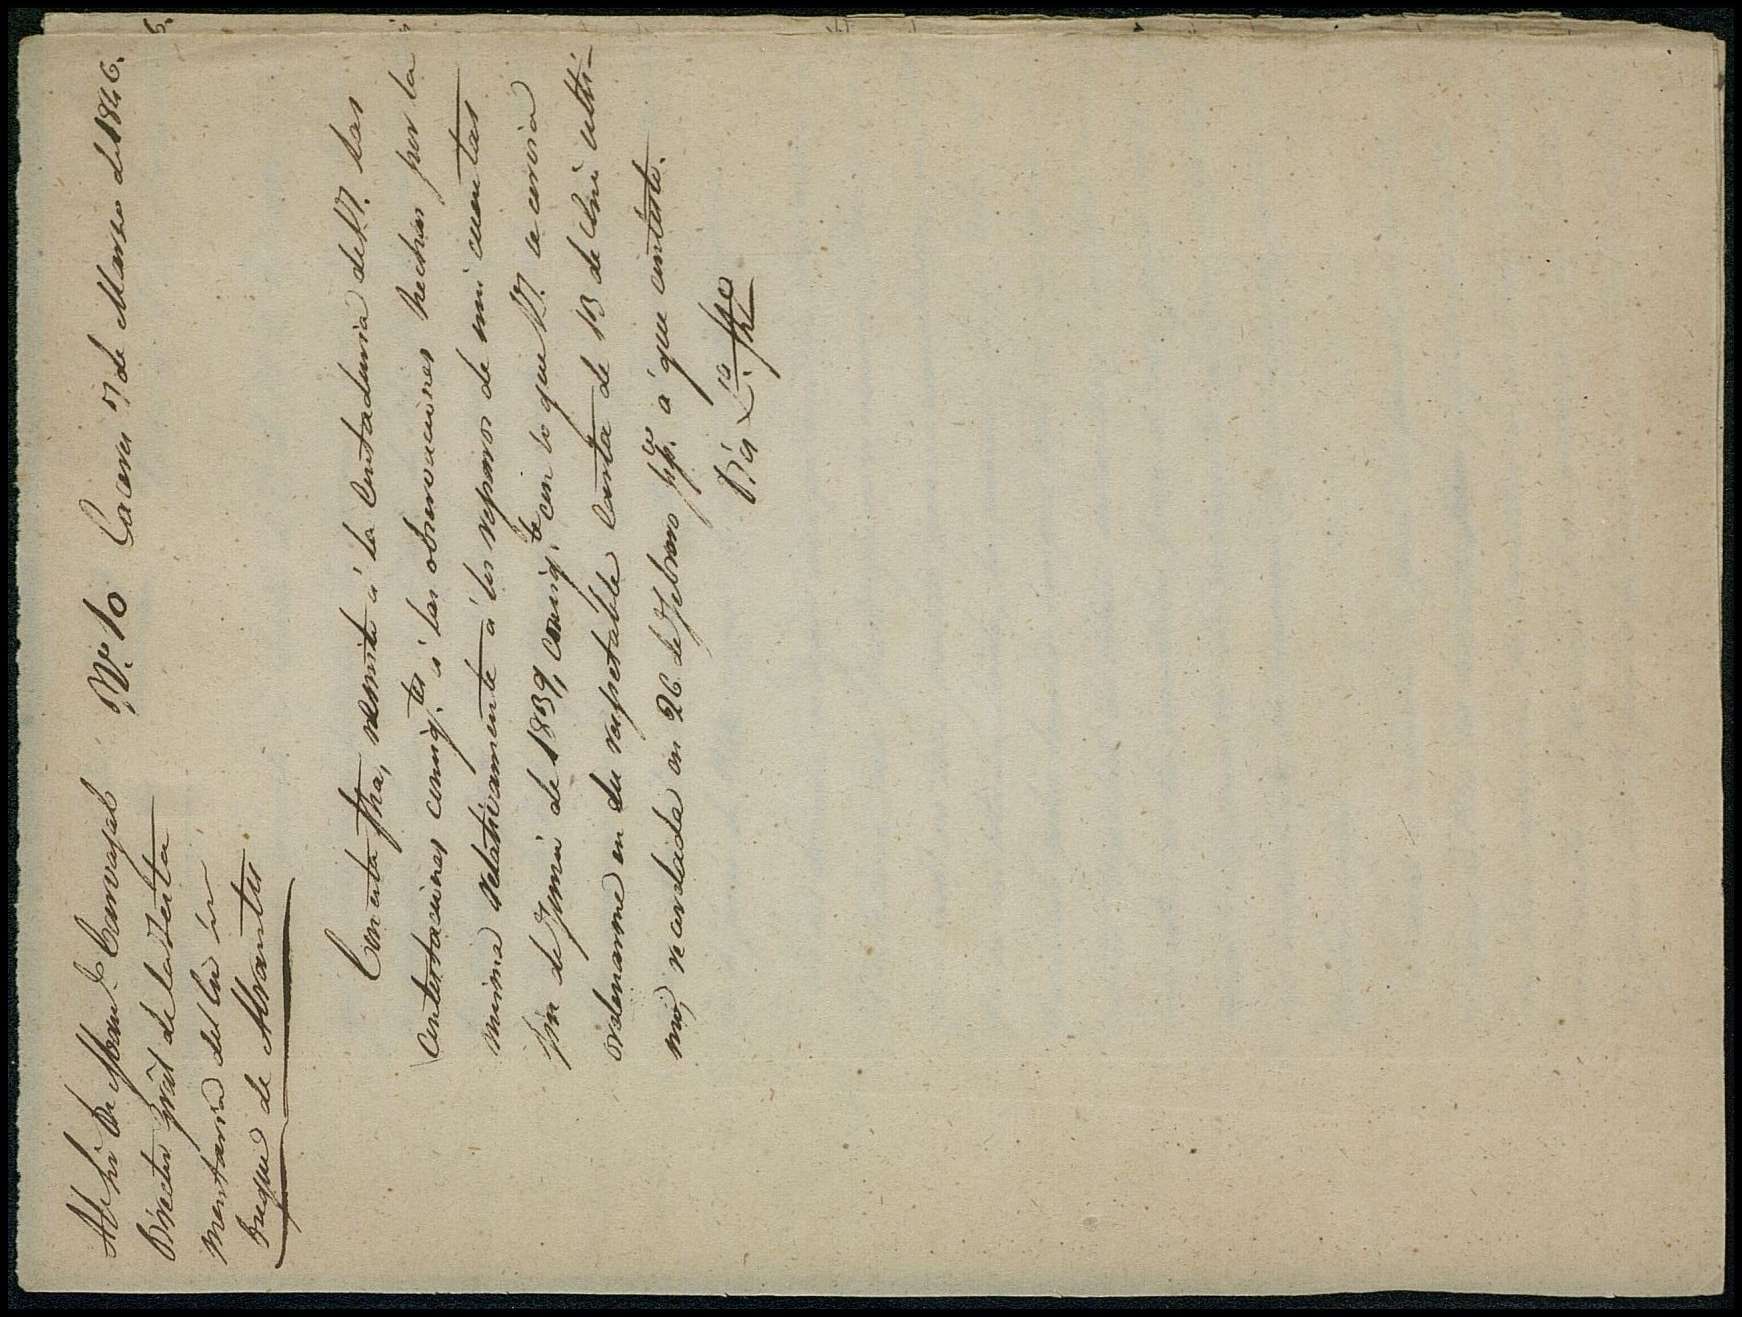 Al Sr. Dn. Manl. Carvajal
Director gral de la Testa
mentaria del Sor
Duque de Abrantes
Nº. 10 Caceres 7 de Marzo de 1846.
Con esta fha, remito á la Contaduria de V. las
contestaciones consigtes. á las observaciones hechas por la
misma relativamente á los reparos de mi cuentas
fin de Junio de 1839, consigte. con lo que V. se servia
ordenarme en su respetable carta de 13 de Enº ulti-
mo, recordada en 26 de Febrero ppdo. á que contesto.
Dios